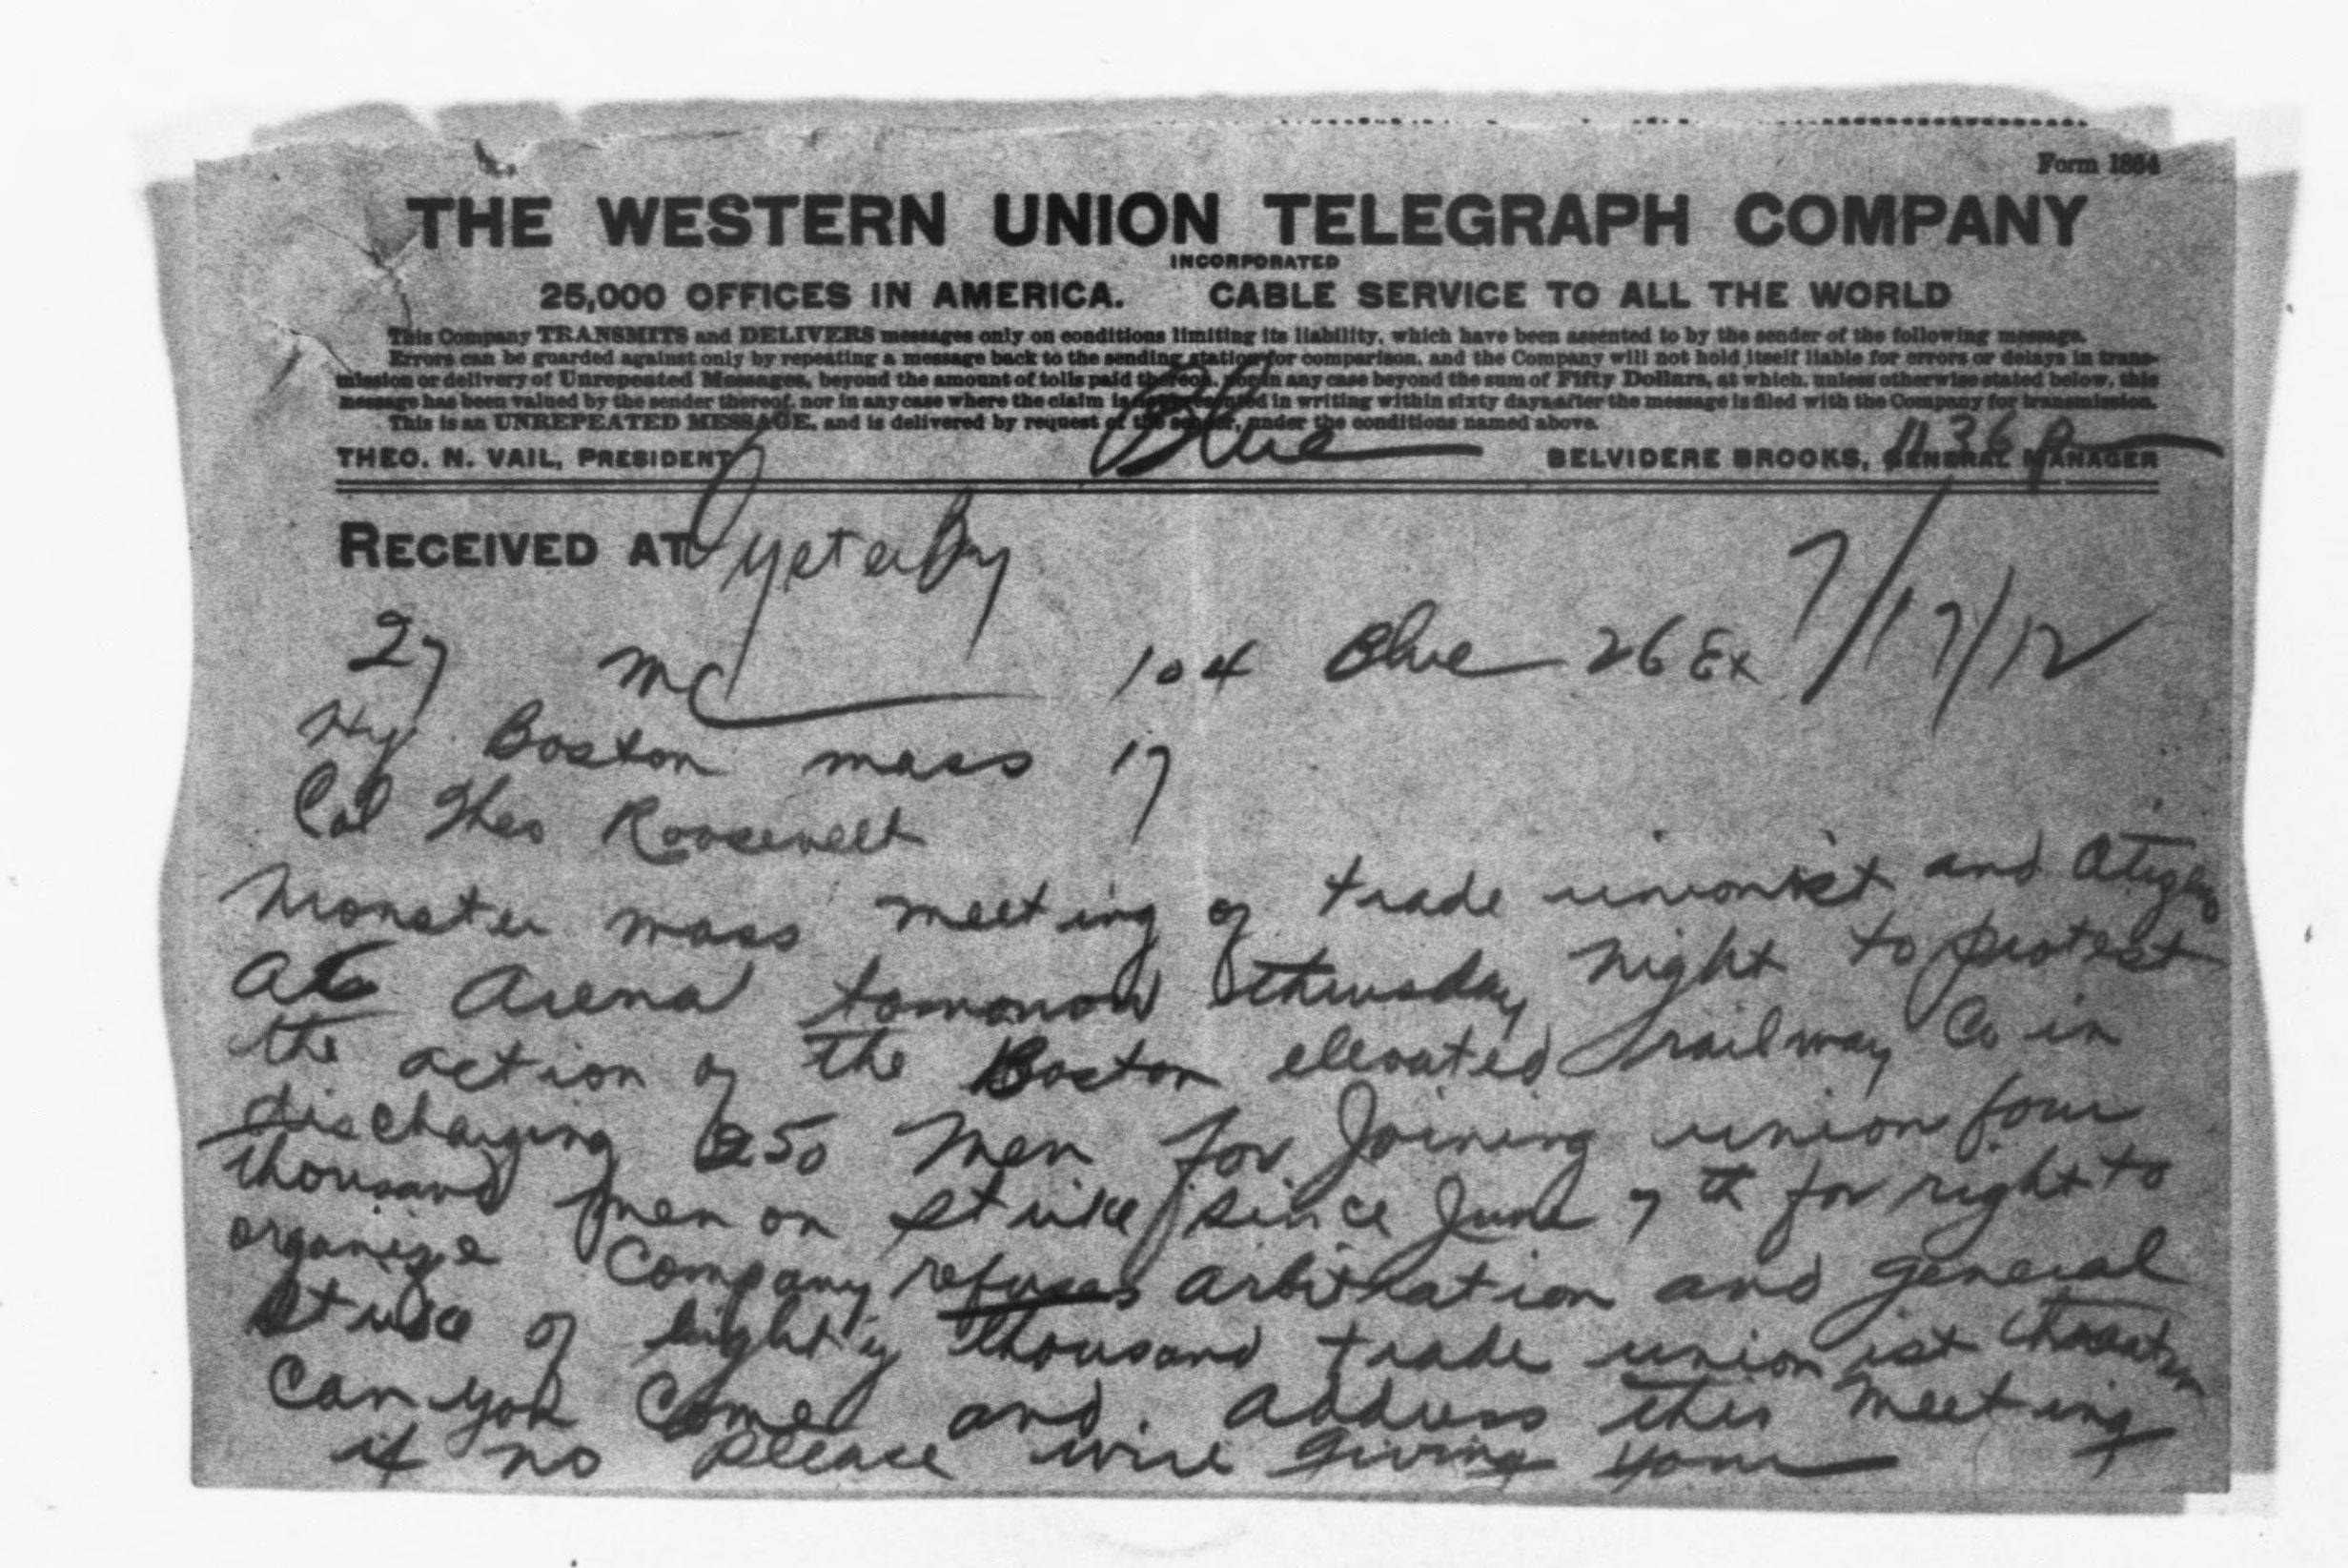 Form 1864
THE WESTERN UNION TELEGRAPH COMPANY
INCORPORATED
25,000 OFFICES IN AMERICA. CABLE SERVICE TO ALL THE WORLD
This Company TRANSMITS and DELIVERS messages only on conditions limiting its liability, which have been assented to by the sender of the following message.
Errors can be guarded against only by repeating a message back to the sending station for comparison, and the Company will not hold itself liable for errors or delays in trans-
mission or delivery of Unrepeated Messages, beyond the amount of tolls paid thereon, nor in any case beyond the sum of Fifty Dollars, at which, unless otherwise stated below, this
message has been valued by the sender thereof, nor in any case where the claim is not presented in writing within sixty days after the message is filed with the Company for transmission.
This is an UNREPEATED MESSAGE, and is delivered by request of the sender, under the conditions named above.
THEO. N. VAIL, PRESIDENT Blue BELVIDERE BROOKS, GENERAL MANAGER
1136 Pm
RECEIVED AT Oysterby 7/17/12
27 MC 104 Blue 26 Ex
Hy Boston mass 17
Col Theo Roosevelt
Monster mass meeting of trade unionist and citizens
at Arena tomorrow thursday night to protest
the action of the Boston elevated railway Co in
discharging 250 men for Joining union four
thousand men on strike since June 7th for right to
organize Company refuses arbitration and general
strike of eighty thousand trade unionist threaten
can you come and address this meeting
if no please wire giving your